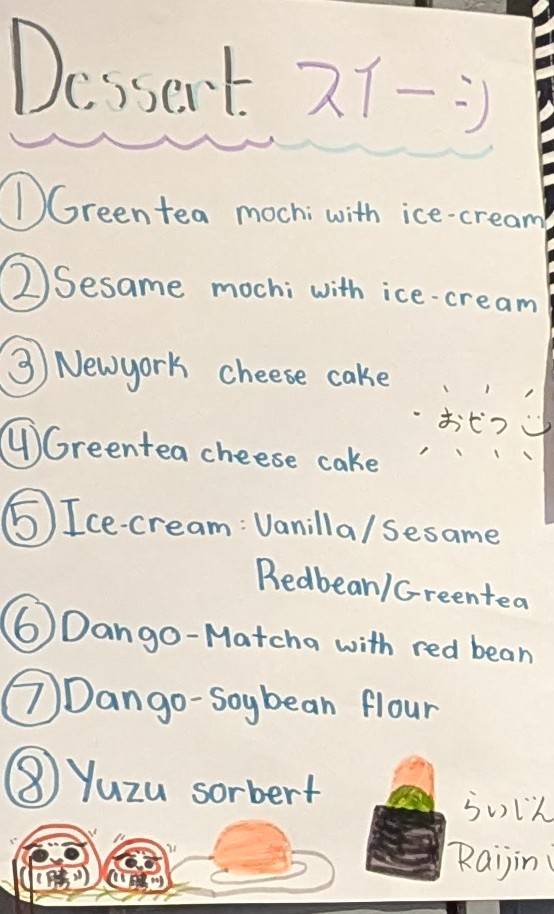 Dessert スイーツ
① Greentea mochi with ice-cream
② Sesame mochi with ice-cream
③ Newyork cheese cake
おやつ
④ Greentea cheese cake
⑤ Ice-cream: Vanilla/Sesame
Redbean/Greentea
⑥ Dango-Matcha with red bean
⑦ Dango-Soybean flour
⑧ Yuzu sorbert
らいじん
Raijin
勝 勝